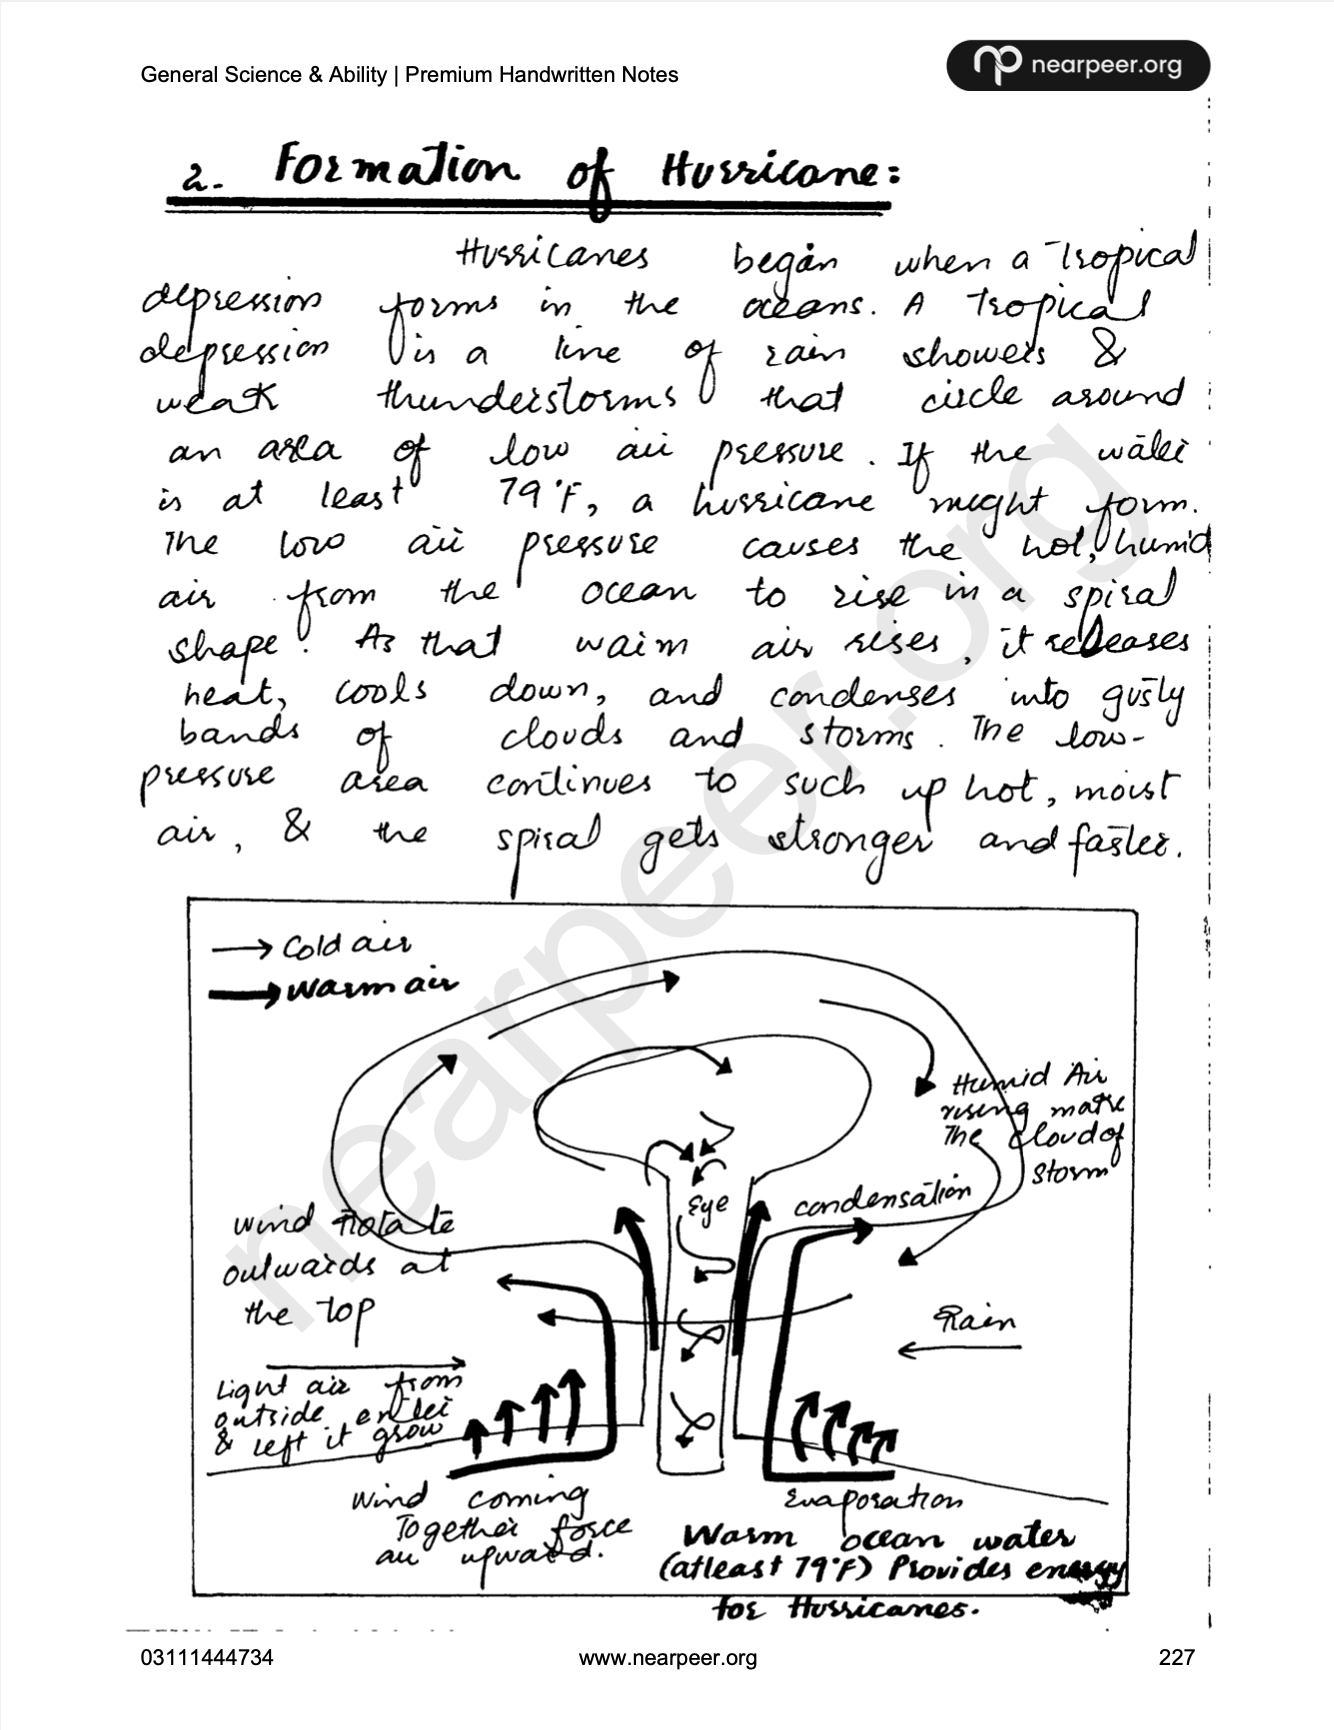 General Science & Ability | Premium Handwritten Notes
nearpeer.org
2. Formation of Hurricane:
Hurricanes began when a Tropical
depression forms in the oceans. A Tropical
depression is a line of rain showers &
weak thunderstorms that circle around
an area of low air pressure. If the water
is at least 79°F, a hurricane might form.
The low air pressure causes the hot, humid
air from the ocean to rise in a spiral
shape. As that warm air rises, it releases
heat, cools down, and condenses into gusty
bands of clouds and storms. The low-
pressure area continues to such up hot, moist
air, & the spiral gets stronger and faster.
Cold air
Warm air
Humid Air
rising make
The cloud of
storm
Eye
condensation
wind Rotate
outwards at
the top
Rain
Light air from
outside enter
& left it grow
Wind coming
Together force
air upward.
Evaporation
Warm ocean water
(atleast 79°F) Provides energy
for Hurricanes.
nearpeer.org
03111444734
www.nearpeer.org
227